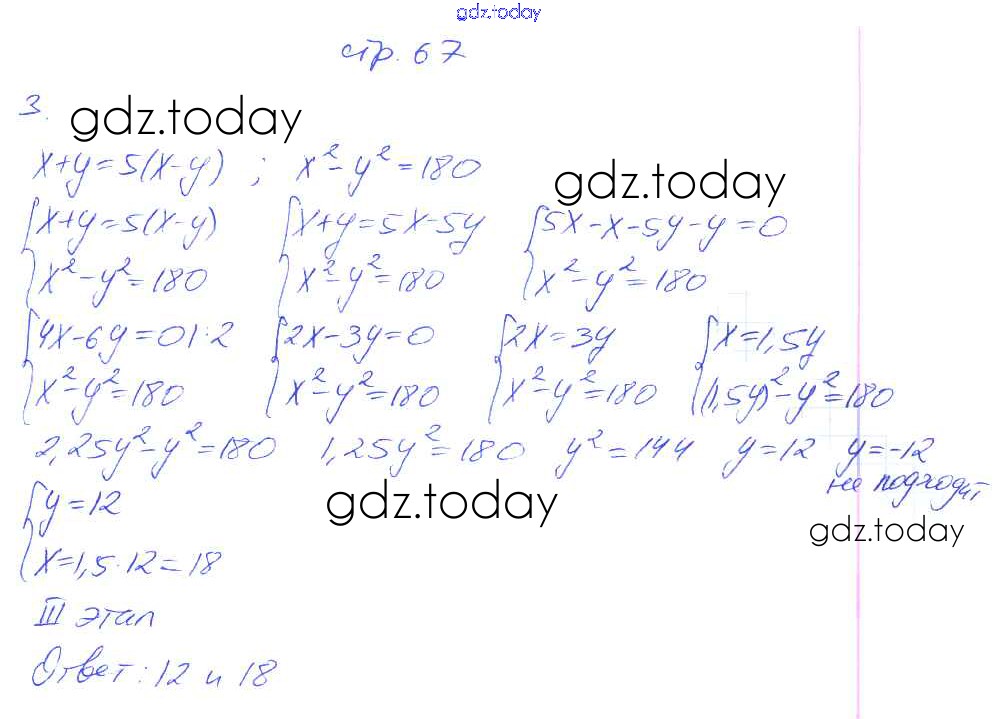 gdz.today
стр. 67
3.
gdz.today
x+y=5(x-y) ; x²-y²=180
gdz.today
{x+y=5(x-y) {x+y=5x-5y {5x-x-5y-y=0
{x²-y²=180 {x²-y²=180 {x²-y²=180
{4x-6y=0|:2 {2x-3y=0 {2x=3y {x=1,5y
{x²-y²=180 {x²-y²=180 {x²-y²=180 {(1,5y)²-y²=180
2,25y²-y²=180 1,25y²=180 y²=144 y=12 y=-12
не подходит
{y=12
gdz.today
gdz.today
{x=1,5·12=18
III этап
Ответ: 12 и 18